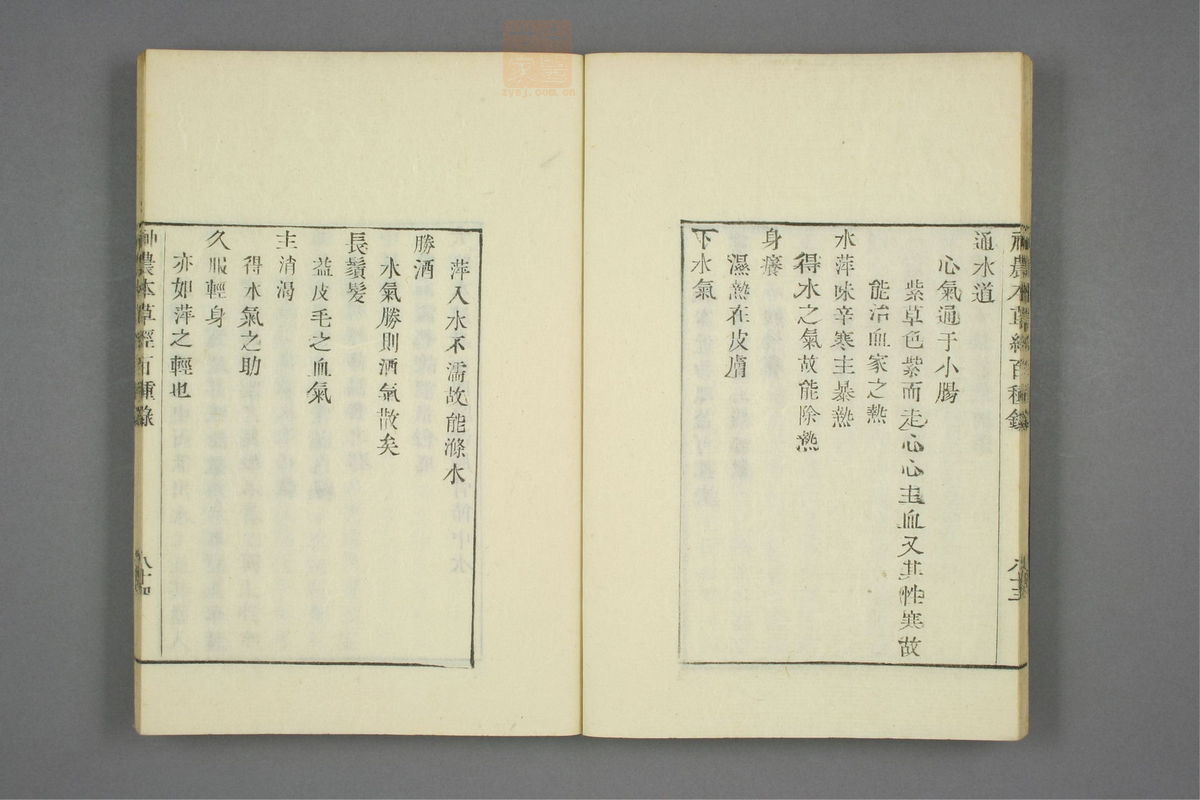 神農本草經百種錄
八十三
通水道
心氣通于小腸
紫草色紫而走心心主血又其性寒故
能治血家之熱
水萍味辛寒主暴熱
得水之氣故能除熱
身癢
濕熱在皮膚
下水氣
萍入水不濡故能滌水
勝酒
水氣勝則酒氣散矣
長鬚髮
益皮毛之血氣
主消渴
得水氣之助
久服輕身
亦如萍之輕也
神農本草經百種錄
八十四
zysj.com.cn